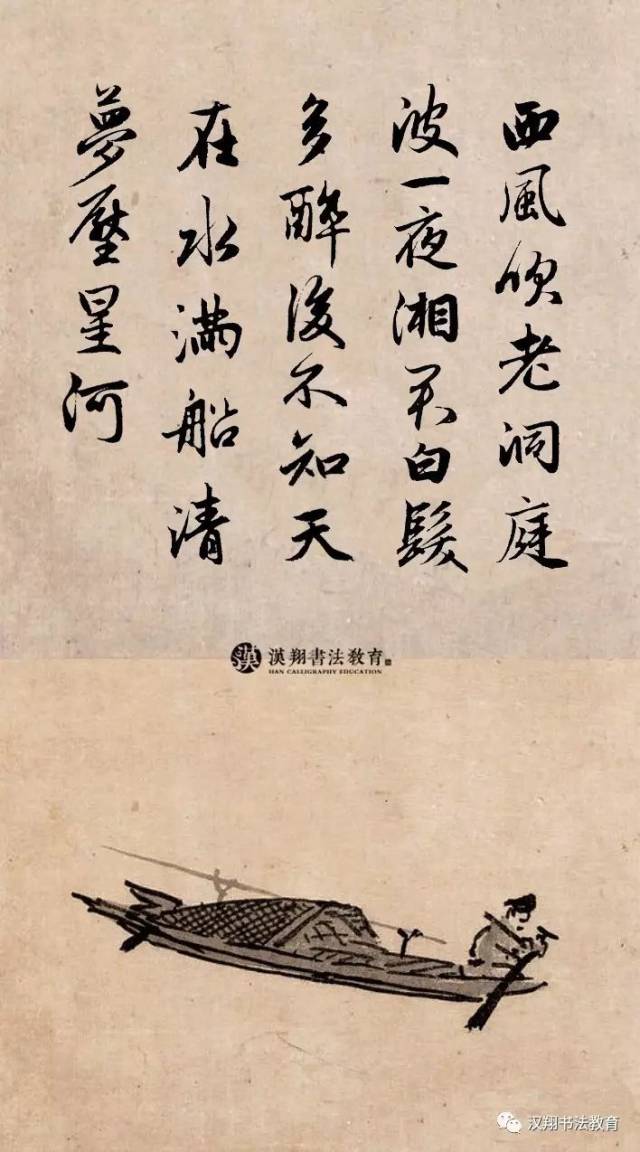 西風吹老洞庭
波一夜湘君白髮
多醉後不知天
在水滿船清
夢壓星河
漢 漢翔書法教育
HAN CALLIGRAPHY EDUCATION
汉翔书法教育